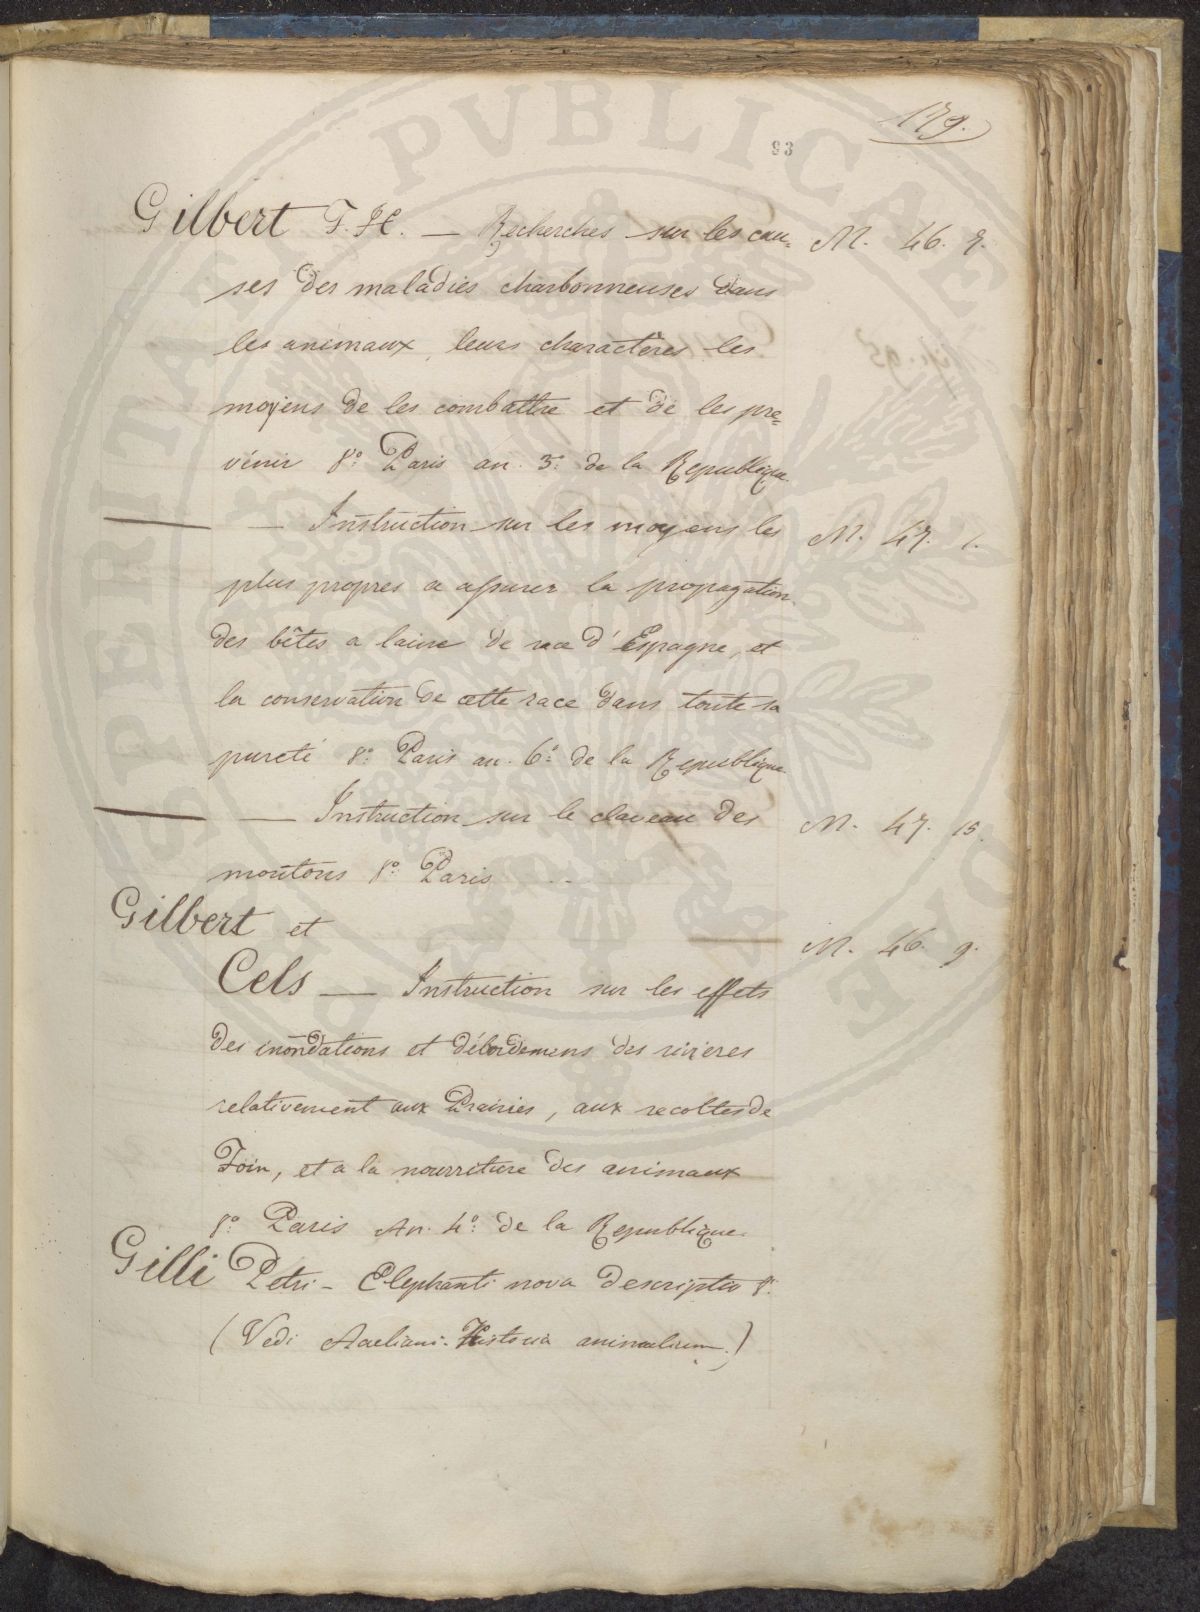 179.
93
Gilbert F. H. — Recherches sur les cau= M. 46. 7.
ses des maladies charbonneuses dans
les animaux, leurs charactères les
moyens de les combattre et de les pre=
vénir 8.° Paris an. 3.° de la Republique.
— Instruction sur les moyens les M. 47. 1.
plus propres a assurer la propagation
des bêtes a laine de race d'Espagne, et
la conservation de cette race dans toute sa
pureté 8.° Paris an. 6.° de la Republique.
— Instruction sur le claveau des M. 47. 15.
moutons 8.° Paris . . .
Gilbert et
M. 46. 9.
Cels — Instruction sur les effets
des inondations et débordemens des rivieres
relativement aux Prairies, aux recoltes de
Foin, et a la nourriture des animaux
8.° Paris An. 4.° de la Republique.
Gilli Petri - Elephanti nova descriptio 8.°
(Vedi Aaeliani. Historia animalium.)
PROSPERITATI PUBLICAE